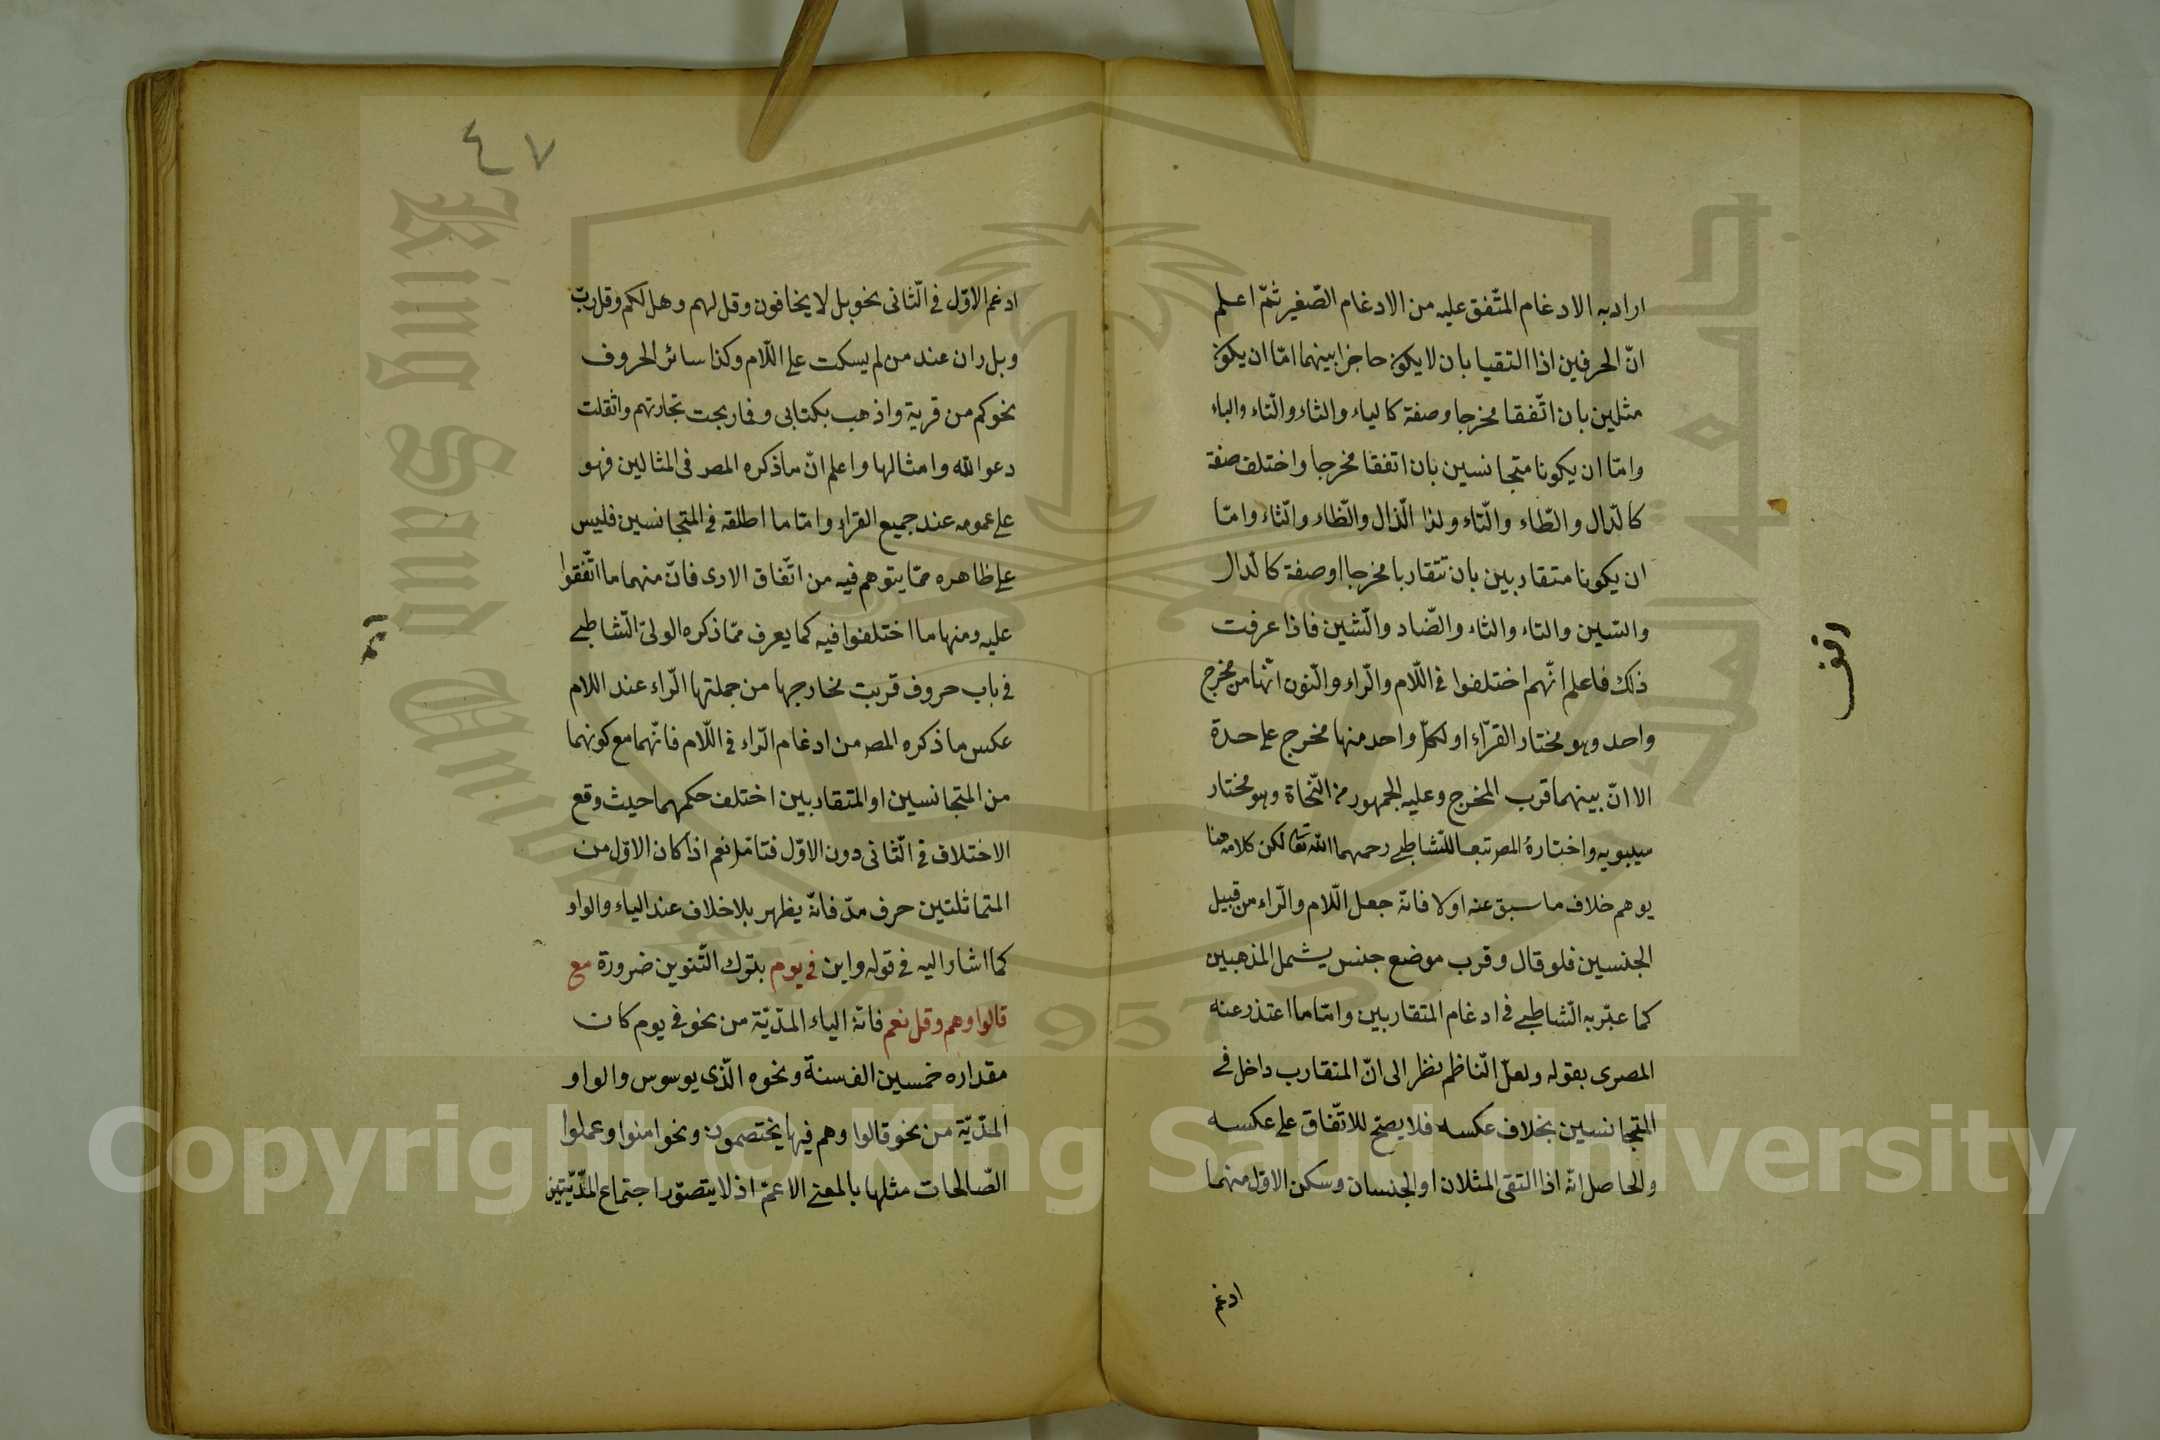 اراد به الادغام المتّفق عليه من الادغام الصّغير ثمّ اعلم
انّ الحرفين اذا التقيا بان لا يكون حاجزا بينهما امّا ان يكون
مثلين بان اتّفقا مخرجا وصفة كالياء والثاء والتّاء والباء
وامّا ان يكونا متجانسين بان اتفقا مخرجا واختلف صفة
كالدّال والطّاء والتّاء ولذا الذّال والظّاء والثّاء وامّا
ان يكونا متقاربين بان تتقاربا مخرجا او صفة كالدّال
والسّين والتاء والثاء والضّاد والشّين فاذا عرفت
ذلك فاعلم انّهم اختلفوا في اللّام والرّاء والنّون انّها من مخرج
واحد وهو مختار القرّاء او لكلّ واحد منها مخرج على حدة
الا انّ بينهما قرب المخرج وعليه الجمهور من النّحاة وهو مختار
سيبويه واختارهٔ المصر تبعا للشّاطبي رحمهما اللّه تعا لكن كلامه هنا
يوهم خلاف ما سبق عنه اولا فانّه جعل اللّام والرّاء من قبيل
الجنسين فلو قال وقرب موضع جنس يشمل المذهبين
كما عبّر به الشّاطبي في ادغام المتقاربين وامّا ما اعتذر عنه
المصرى بقوله ولعلّ النّاظم نظر الى انّ المتقارب داخل في
المتجانسين بخلاف عكسه فلا يصحّ للاتّفاق على عكسه
والحاصل انّه اذا التقى المثلان او الجنسان وسكن الاوّل منهما
ادغم
وقف
٤٧
ادغم الاوّل في الثّانى نحو بل لا يخافون وقل لهم وهل لكم وقل ربّ
وبل ران عند من لم يسكت على اللّام وكذا سائر الحروف
نحو كم من قرية واذهب بكتابى وفما ربحت تجارتهم واثقلت
دعوا الله وامثالها واعلم انّ ما ذكره المصر فى المثالين فهو
على عمومه عند جميع القراء وامّا ما اطلقه في المتجانسين فليس
على ظاهره ممّا يتوهم فيه من اتّفاق الادى فانّ منهما ما اتّفقوا
عليه ومنها ما اختلفوا فيه كما يعرف ممّا ذكره الولىّ الشّاطبي
في باب حروف قربت مخارجها من جملتها الرّاء عند اللام
عكس ما ذكره المصر من ادغام الرّاء في اللّام فانّهما مع كونهما
من المتجانسين او المتقاربين اختلف حكمهما حيث وقع
الاختلاف في الثّانى دون الاوّل فتامّل نعم اذا كان الاوّل من
المتماثلتين حرف مدّ فانّه يظهر بلا خلاف عند الياء والواو
كما اشار اليه في قوله وابن في يوم بترك التّنوين ضرورة مع
قالوا وهم وقل نعم فانّه الياء المدّيّة من نحو في يوم كان
مقداره خمسين الف سنة ونحوه الّذى يوسوس والواو
المدّيّة من نحو قالوا وهم فيها يختصمون ونحو امنوا وعملوا
الصّالحات مثلها بالمعنى الاعمّ اذ لا يتصوّر اجتماع المدّيّتين
King Saud University
جامعة الملك
1957
Copyright © King Saud University